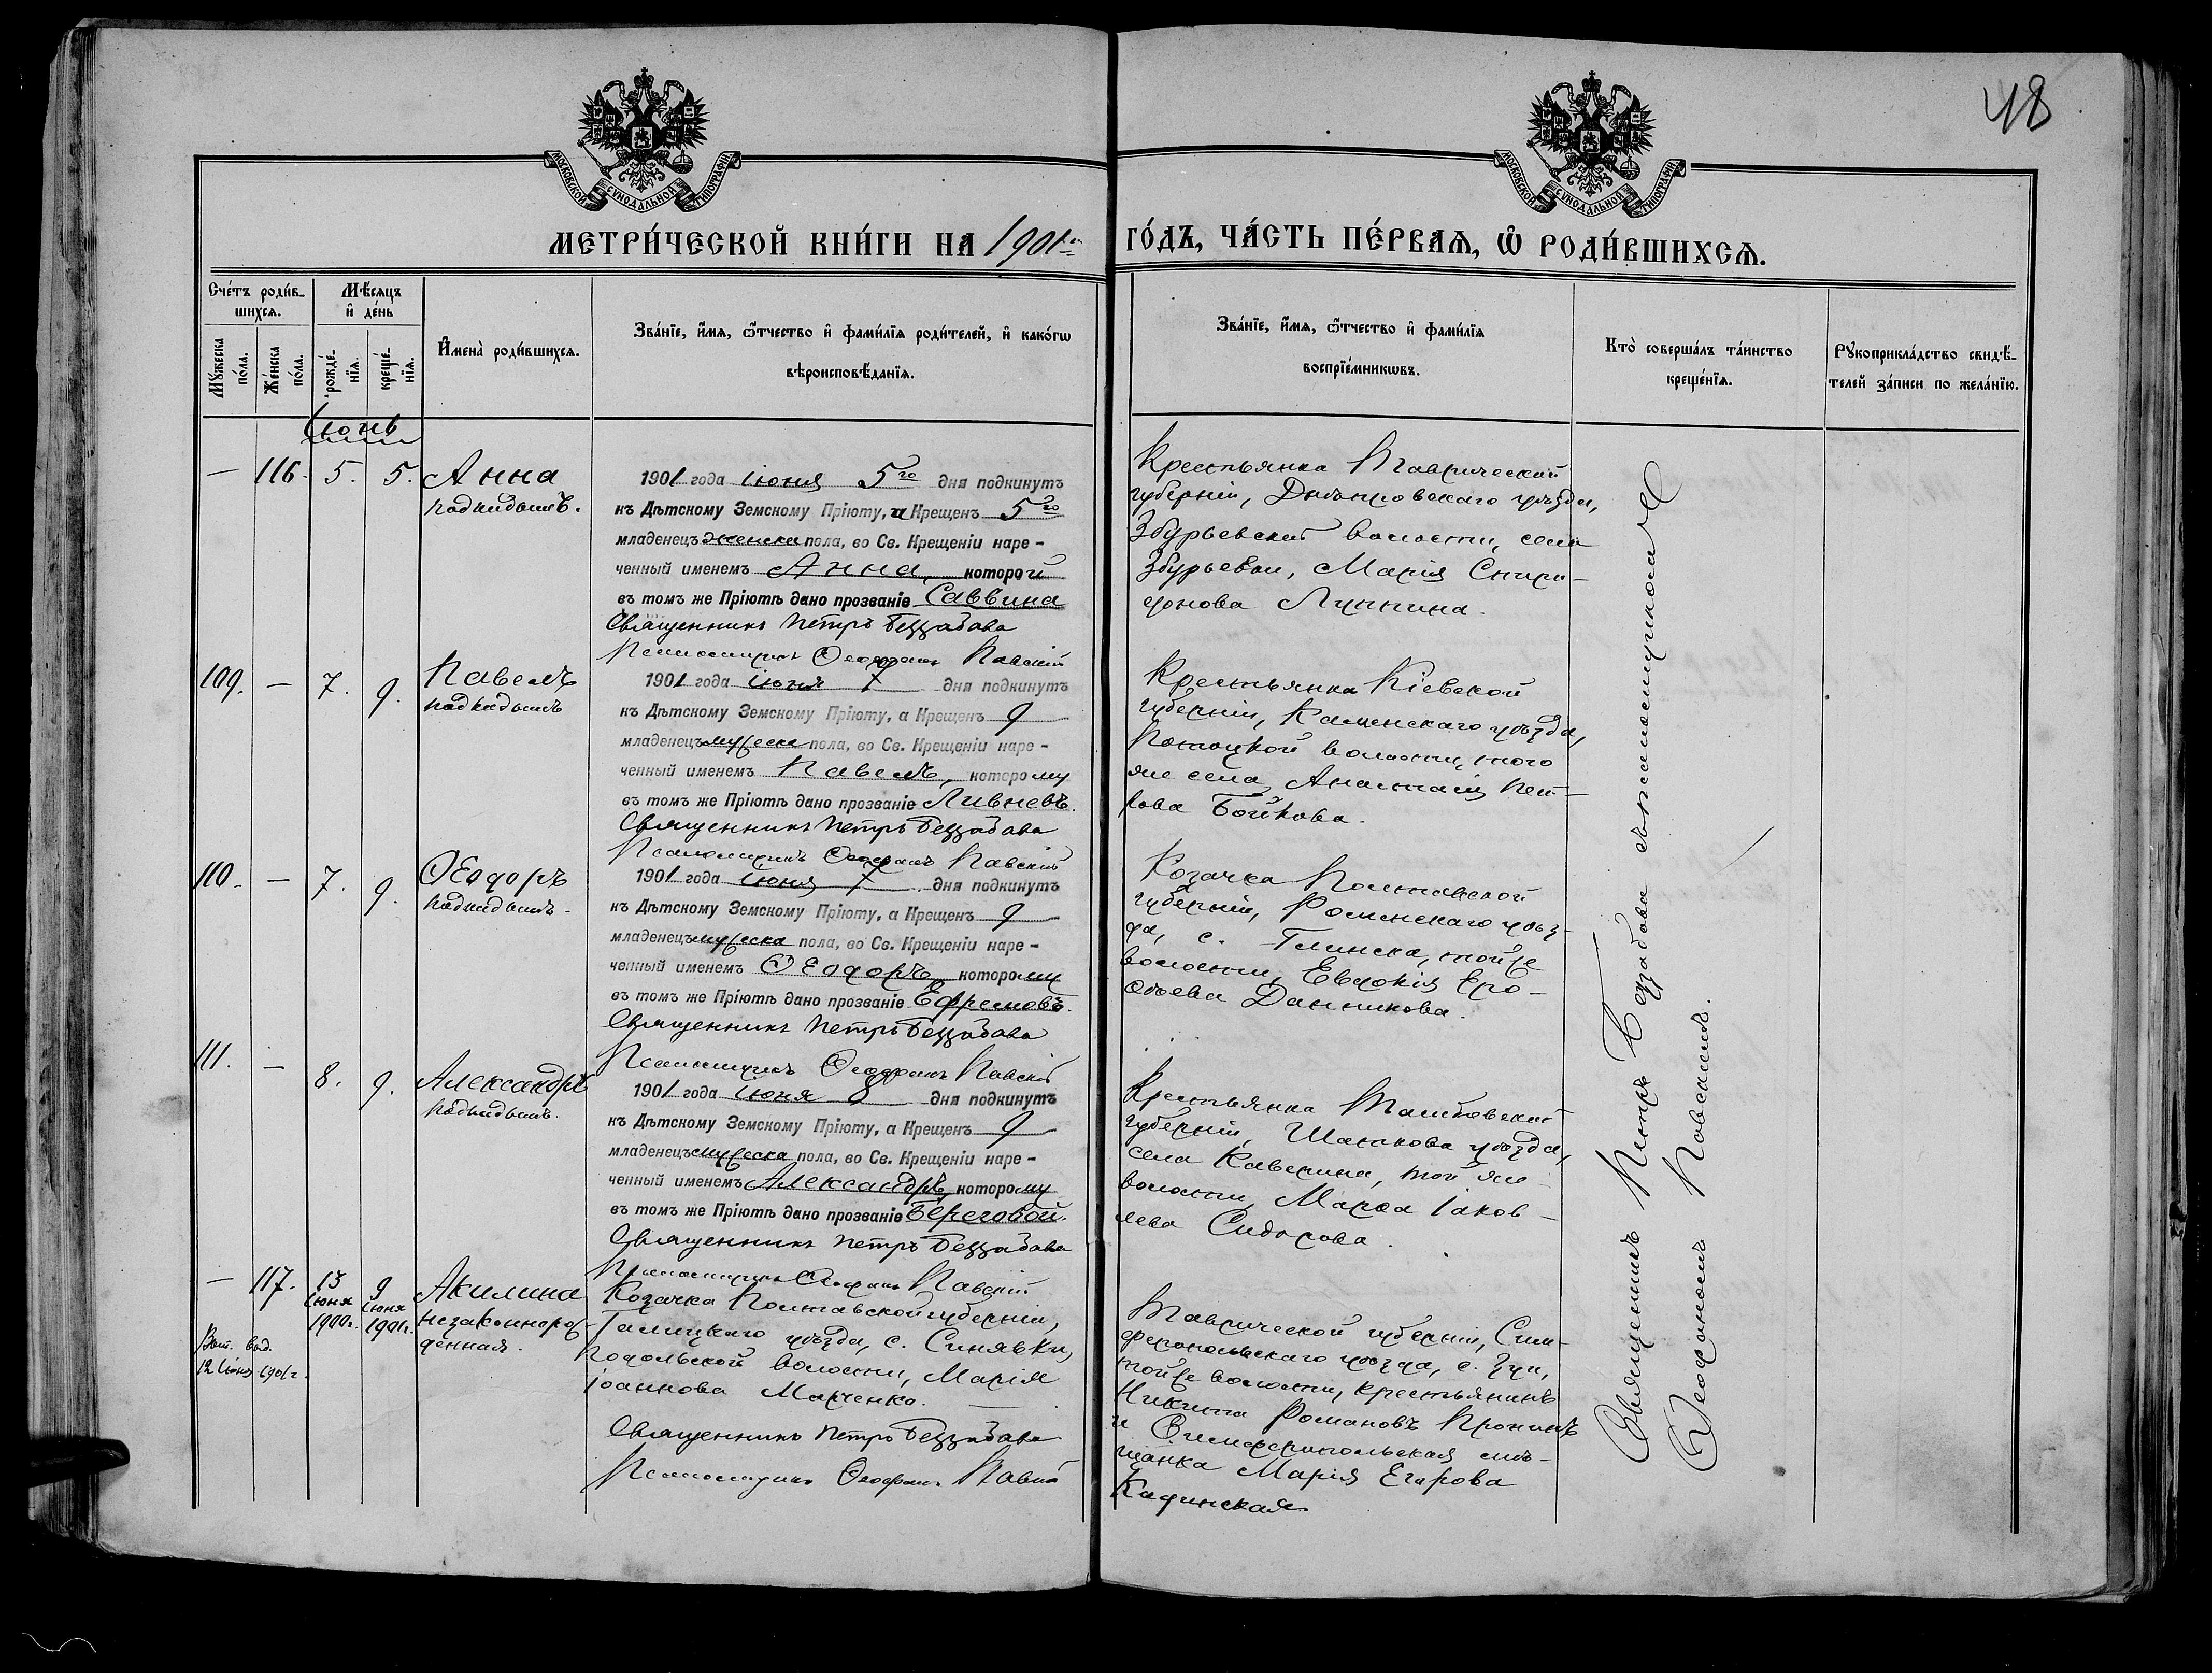 48
МОСКОВСКОЙ СѴНОДАЛЬНОЙ ТИПОГРАФІИ
МОСКОВСКОЙ СѴНОДАЛЬНОЙ ТИПОГРАФІИ
МЕТРИ́ЧЕСКОЙ КНИ́ГИ НА 1901й ГО́ДЪ, ЧА́СТЬ ПЕ́РВАѦ, Ѿ РОДИ́ВШИХСѦ.
Сче́тъ роди́в-
шихсѧ.
Мѣ́сѧцъ
и҆ де́нь
Мꙋ́жеска
по́ла.
Же́нска
по́ла.
рожде́-
нїѧ.
креще́-
нїѧ.
И҆мена̀ роди́вшихсѧ.
Зва́нїе, и҆́мѧ, ѻ҆́тчество и҆ фами́лїѧ роди́телей, и҆ како́гѡ
вѣроисповѣ́данїѧ.
Зва́нїе, и҆́мѧ, ѻ҆́тчество и҆ фами́лїѧ
воспрїе́мникѡвъ.
Кто̀ соверша́лъ та́инство
креще́нїѧ.
Рꙋкоприкла́дство свидѣ́-
телей за́писи по жела́нїю.
Іюнь
— 116. 5. 5. Анна
подкидышъ.
1901 года іюня 5го дня подкинутъ
къ Дѣтскому Земскому Пріюту, а Крещенъ 5го
младенецъ женска пола, во Св. Крещеніи наре-
ченный именемъ Анна, которой
въ томъ же Пріютѣ дано прозваніе Саввина
Священникъ Петръ Беззабава
Псаломщикъ Ѳеофанъ Павскій
Крестьянка Таврической
губерніи, Днѣпровскаго уѣзда,
Збурьевской волости, села
Збурьевки, Марія Спири-
донова Лупкина.
109. — 7. 9. Павелъ
подкидышъ
1901 года іюня 7 дня подкинутъ
къ Дѣтскому Земскому Пріюту, а Крещенъ 9
младенецъ мужеска пола, во Св. Крещеніи наре-
ченный именемъ Павелъ, которому
въ томъ же Пріютѣ дано прозваніе Ливневъ.
Священникъ Петръ Беззабава
Псаломщикъ Ѳеофанъ Павскій
Крестьянка Кіевской
губерніи, Каменскаго уѣзда,
Потоцкой волости, того
же села, Анастасія Пет-
рова Бойкова.
110. — 7. 9. Ѳеодоръ
подкидышъ.
1901 года іюня 7 дня подкинутъ
къ Дѣтскому Земскому Пріюту, а Крещенъ 9
младенецъ мужеска пола, во Св. Крещеніи наре-
ченный именемъ Ѳеодоръ, которому
въ томъ же Пріютѣ дано прозваніе Ефремовъ.
Священникъ Петръ Беззабава
Псаломщикъ Ѳеофанъ Павскій
Козачка Полтавской
губерніи, Роменскаго уѣз-
да, с. Глинска, той же
волости, Евдокія Еро-
ѳѣева Данникова.
111. — 8. 9. Александръ
подкидышъ.
1901 года іюня 8 дня подкинутъ
къ Дѣтскому Земскому Пріюту, а Крещенъ 9
младенецъ мужеска пола, во Св. Крещеніи наре-
ченный именемъ Александръ, которому
въ томъ же Пріютѣ дано прозваніе Береговой.
Священникъ Петръ Беззабава
Псаломщикъ Ѳеофанъ Павскій
Крестьянка Тамбовской
губерніи, Шацкова уѣзда,
села Каверина, той же
волости, Марѳа Іаков-
лева Сидорова.
— 117. 13 іюня 1900г. 9 іюня 1901г. Акилина
незаконнорож-
денная.
Вып. выд.
12 іюня 1901г.
Козачка Полтавской губерніи,
Галицкаго уѣзда, с. Синявки,
Подольской волости, Марія
Іоаннова Марченко.
Священникъ Петръ Беззабава
Псаломщикъ Ѳеофанъ Павскій
Таврической губерніи, Сим-
феропольскаго уѣзда, с. Зуи,
той же волости, крестьянинъ
Никита Романовъ Пронинъ
и Симферопольская мѣ-
щанка Марія Егорова
Кадинская
Священникъ Петръ Беззабава съ псаломщикомъ
Ѳеофаномъ Павскимъ.